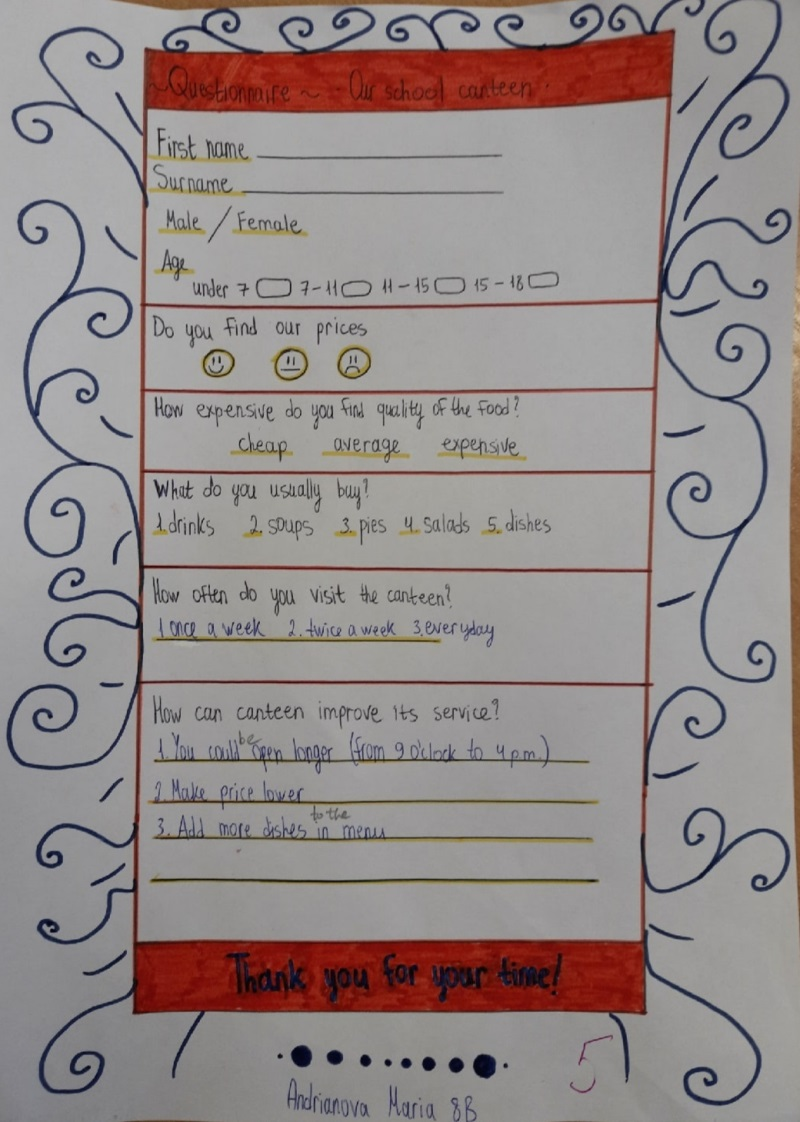 ~Questionnaire ~ Our school canteen.
First name
Surname
Male / Female
Age
under 7 7-11 11-15 15-18
Do you find our prices
How expensive do you find quality of the food?
cheap average expensive
What do you usually buy?
1. drinks 2. soups 3. pies 4. salads 5. dishes
How often do you visit the canteen?
1 once a week 2. twice a week 3. everyday
How can canteen improve its service?
be
1. You could open longer (from 9 o'clock to 4 p.m.)
2. Make price lower
to the
3. Add more dishes in menu
Thank you for your time!
5
Andrianova Maria 8B